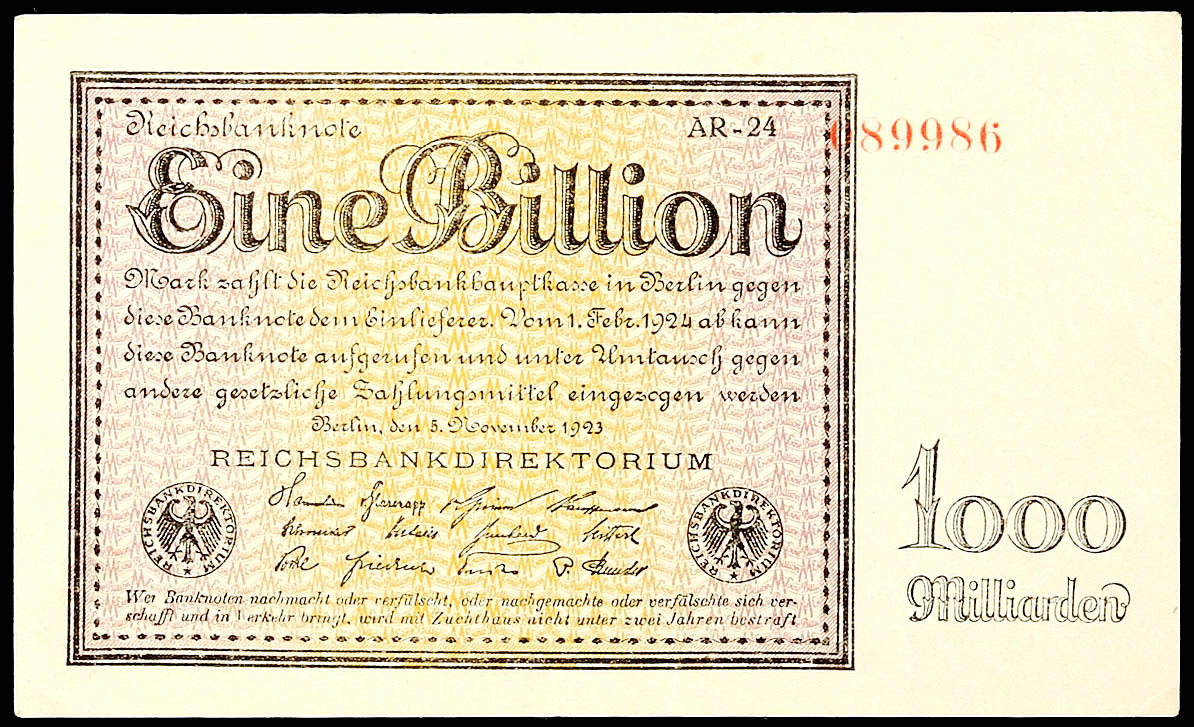 Reichsbanknote
AR-24
089986
Eine Billion
Mark zahlt die Reichsbankhauptkasse in Berlin gegen
diese Banknote dem Einlieferer. Vom 1. Febr. 1924 ab kann
diese Banknote aufgerufen und unter Umtausch gegen
andere gesetzliche Zahlungsmittel eingezogen werden
Berlin, den 5. November 1923
REICHSBANKDIREKTORIUM
REICHSBANKDIREKTORIUM
REICHSBANKDIREKTORIUM
Wer Banknoten nachmacht oder verfälscht, oder nachgemachte oder verfälschte sich ver-
schafft und in Verkehr bringt, wird mit Zuchthaus nicht unter zwei Jahren bestraft
1000
Milliarden